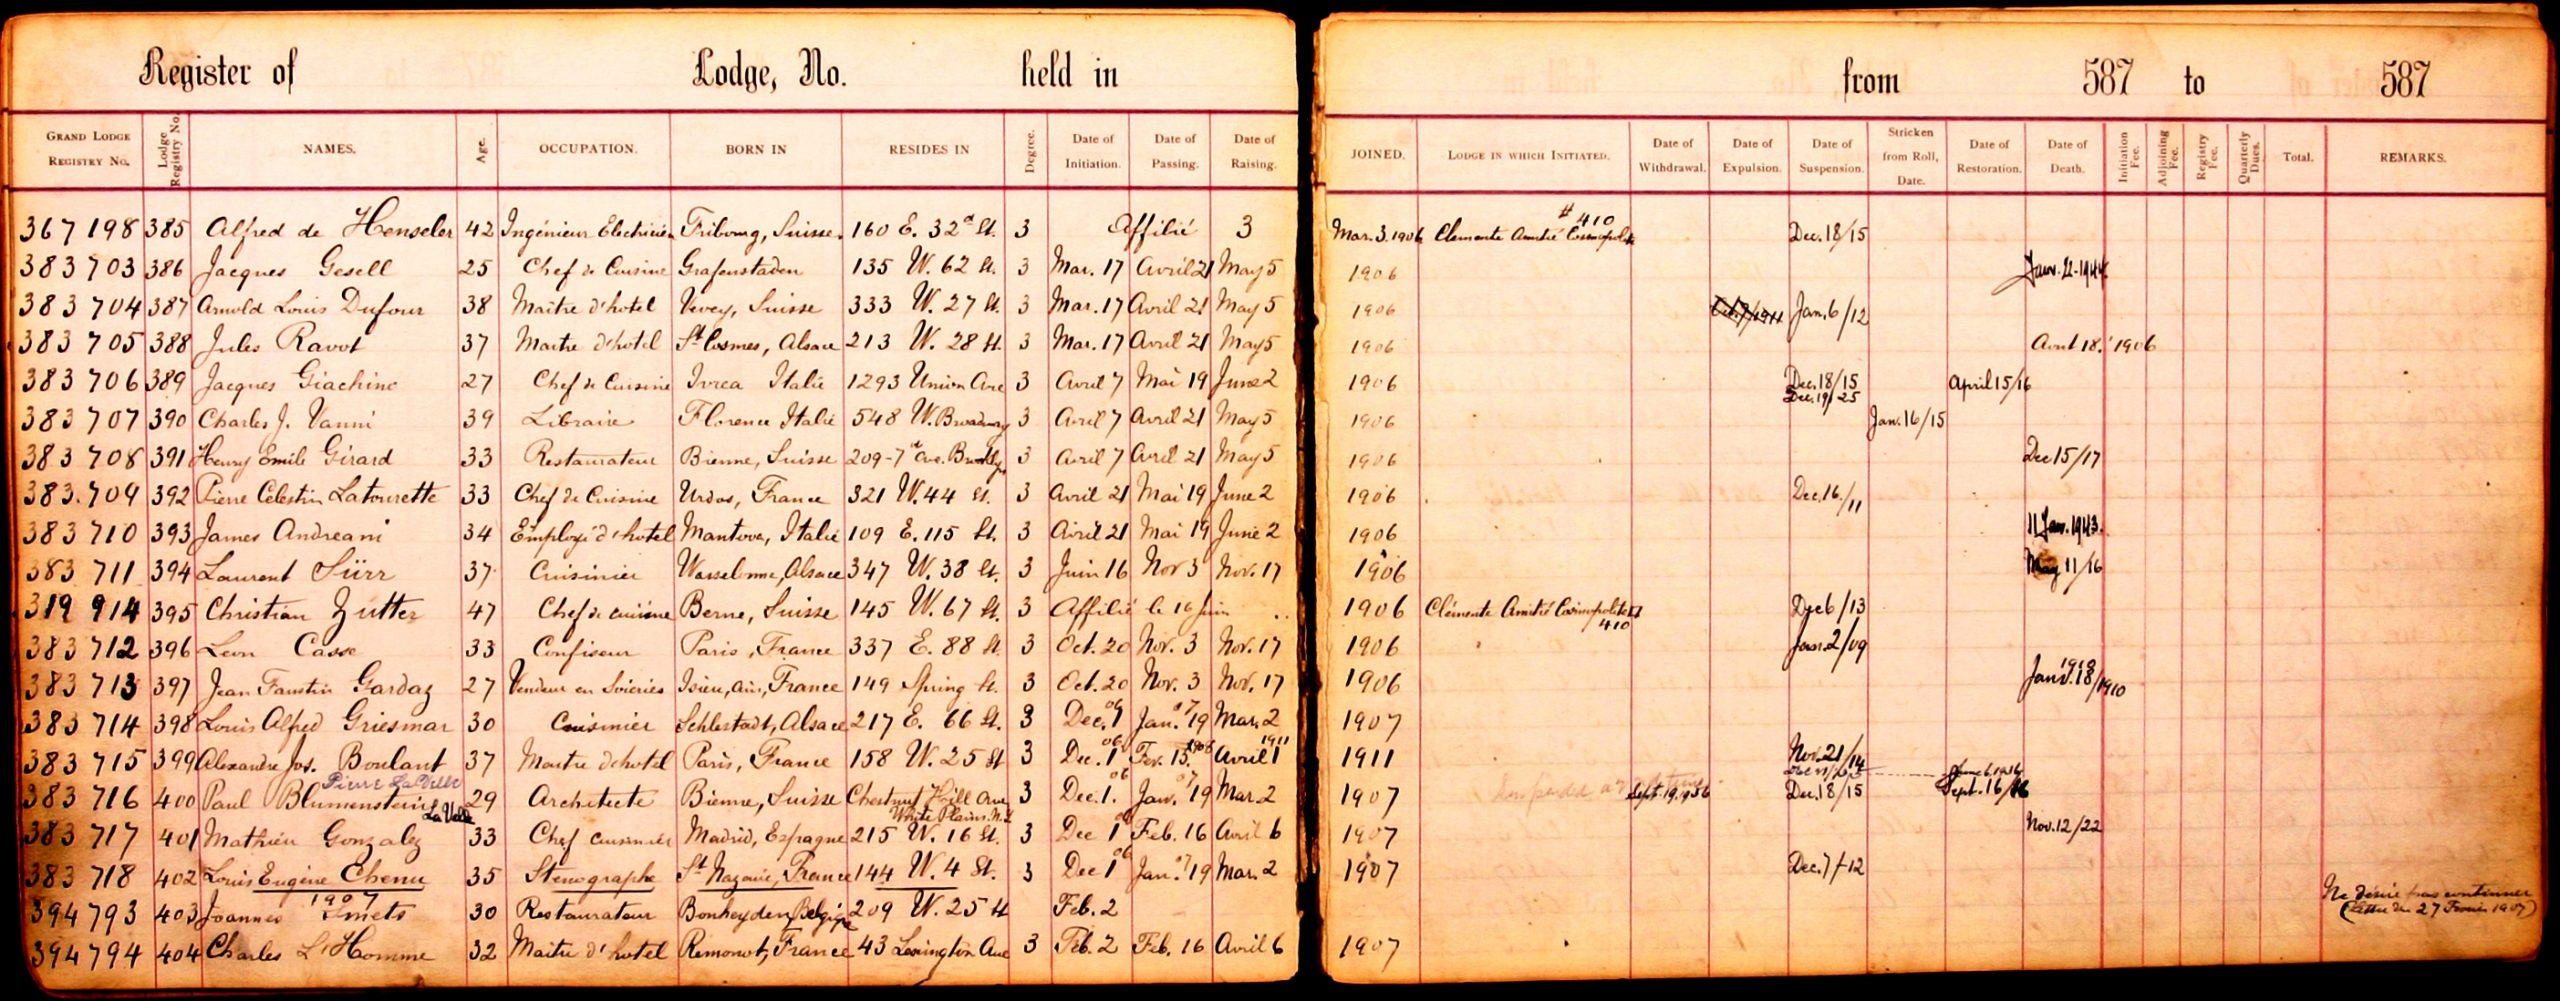 Register of Lodge, No. held in from 587 to 587
GRAND LODGE REGISTRY NO. Lodge Registry No. NAMES. Age. OCCUPATION. BORN IN RESIDES IN Degree. Date of Initiation. Date of Passing. Date of Raising. JOINED. LODGE IN WHICH INITIATED. Date of Withdrawal. Date of Expulsion. Date of Suspension. Stricken from Roll, Date. Date of Restoration. Date of Death. Initiation Fee. Adjoining Fee. Registry Fee. Quarterly Dues. Total. REMARKS.
367 198 385 Alfred de Henseler 42 Ingénieur Electricien Fribourg, Suisse. 160 E. 32d St. 3 Affilié 3 Mar. 3. 1906 Clemente Amitié Cosmopolite # 410 Dec. 18/15
383 703 386 Jacques Gesell 25 Chef de Cuisine Grafenstaden 135 W. 62 St. 3 Mar. 17 Avril 21 May 5 1906 Janv. 21-1944
383 704 387 Arnold Louis Dufour 38 Maitre d'hotel Vevey, Suisse 333 W. 27 St. 3 Mar. 17 Avril 21 May 5 1906 Jan. 6/12
383 705 388 Jules Ravot 37 Maitre d'hotel St Cosmes, Alsace 213 W. 28 St. 3 Mar. 17 Avril 21 May 5 1906 Avril 18. 1906
383 706 389 Jacques Giachino 27 Chef de Cuisine Ivrea Italie 1293 Union Ave 3 Avril 7 Mai 19 June 2 1906 Dec. 18/15 Dec. 19/25 April 15/16
383 707 390 Charles J. Vanni 39 Libraire Florence Italie 548 W. Broadway 3 Avril 7 Avril 21 May 5 1906 Jan. 16/15
383 708 391 Henry Emile Girard 33 Restaurateur Bienne, Suisse 209-7th Ave. Brooklyn 3 Avril 7 Avril 21 May 5 1906 Dec 15/17
383.709 392 Pierre Célestin Latourette 33 Chef de Cuisine Urdos, France 321 W. 44 St. 3 Avril 21 Mai 19 June 2 1906 Dec. 16./11
383 710 393 James Andreani 34 Employé d'hotel Mantova, Italie 109 E. 115 St. 3 Avril 21 Mai 19 June 2 1906 11 Jan. 1943.
383 711 394 Laurent Sürr 37 Cuisinier Wasselonne, Alsace 347 W. 38 St. 3 Juin 16 Nov 3 Nov. 17 1906 May 11/16
319 914 395 Christian Zutter 47 Chef de cuisine Berne, Suisse 145 W. 67 St. 3 Affilié le 16 Juin 1906 Clémente Amitié Cosmopolite 410 Dec 6/13
383 712 396 Leon Casse 33 Confiseur Paris, France 337 E. 88 St. 3 Oct. 20 Nov. 3 Nov. 17 1906 Jan. 2/09
383 713 397 Jean Faustin Gardaz 27 Vendeur en Soieries Isieu, Ain, France 149 Spring St. 3 Oct. 20 Nov. 3 Nov. 17 1906 Janv. 18/1910
383 714 398 Louis Alfred Griesmar 30 Cuisinier Schlestadt, Alsace 217 E. 66 St. 3 Dec. 1 Jan. 07 19 Mar. 2 1907
383 715 399 Alexandre Jos. Boulant 37 Maitre d'hotel Paris, France 158 W. 25 St 3 Dec. 1 06 Fev. 15. 1908 Avril 1 1911 1911 Nov. 21/14
Pierre LaVelle
383 716 400 Paul Blumenstein LaVelle 29 Architecte Bienne, Suisse Chestnut Hill Ave White Plains. N.Y. 3 Dec. 1. 06 Jan. 07 19 Mar. 2 1907 Sept. 19. 1936 Dec. 18/15 Sept. 16/16
383 717 401 Mathieu Gonzalez 33 Chef cuisinier Madrid, Espagne 215 W. 16 St. 3 Dec 1 06 Feb. 16 Avril 6 1907 Nov. 12/22
383 718 402 Louis Eugène Chenu 35 Stenographe St Nazaire, France 144 W. 4 St. 3 Dec 1 06 Jan. 07 19 Mar. 2 1907 Dec. 7/12
1907
394 793 403 Joannes Smets 30 Restaurateur Bonheyden, Belgique 209 W. 25 St Feb. 2 Ne désire pas continuer (Lettre du 27 Fevrier 1907)
394 794 404 Charles L'Homme 32 Maitre d'hotel Rimonot, France 43 Lexington Ave 3 Feb. 2 Feb. 16 Avril 6 1907